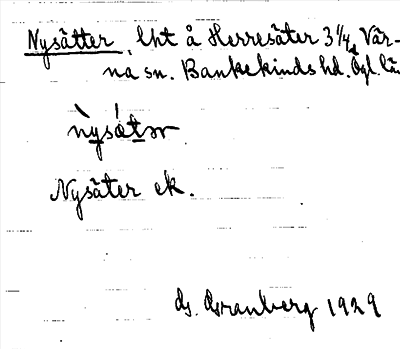 Nysätter, lht å Herresäter 3 1/4, Vår-
na sn. Bankekinds hd. Ögl. län
nysätər
Nysäter ek.
G. Granberg 1929